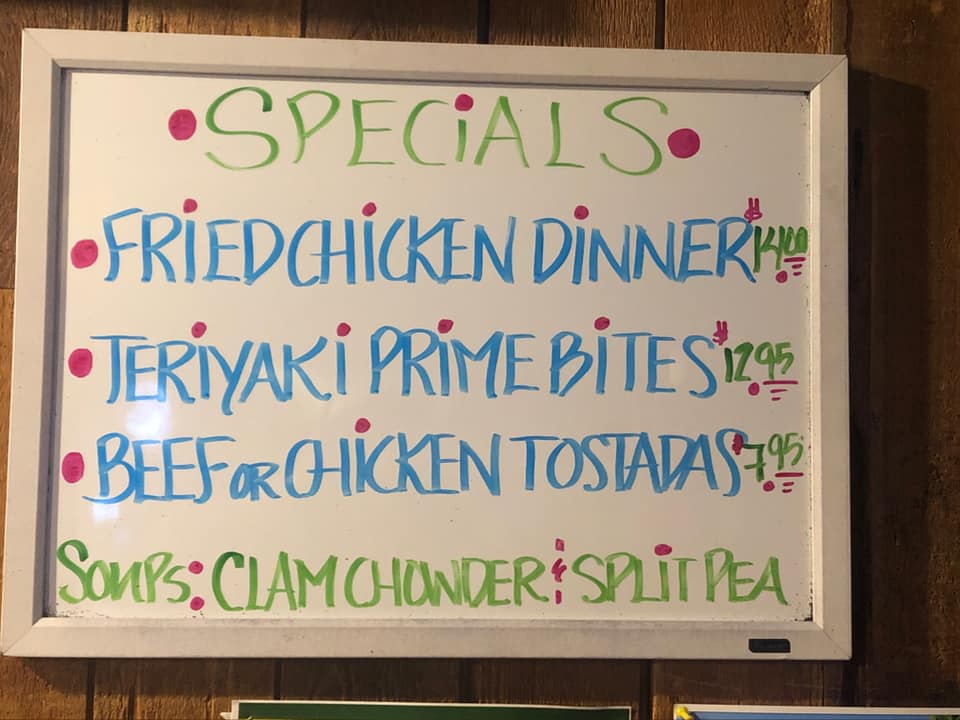 SPECiALS
FRiED CHiCKEN DiNNER $14.00
TERiYAKi PRiME BiTES $12.95
BEEF OR CHiCKEN TOSTADAS $7.95
SOUPS: CLAM CHOWDER & SPLiT PEA